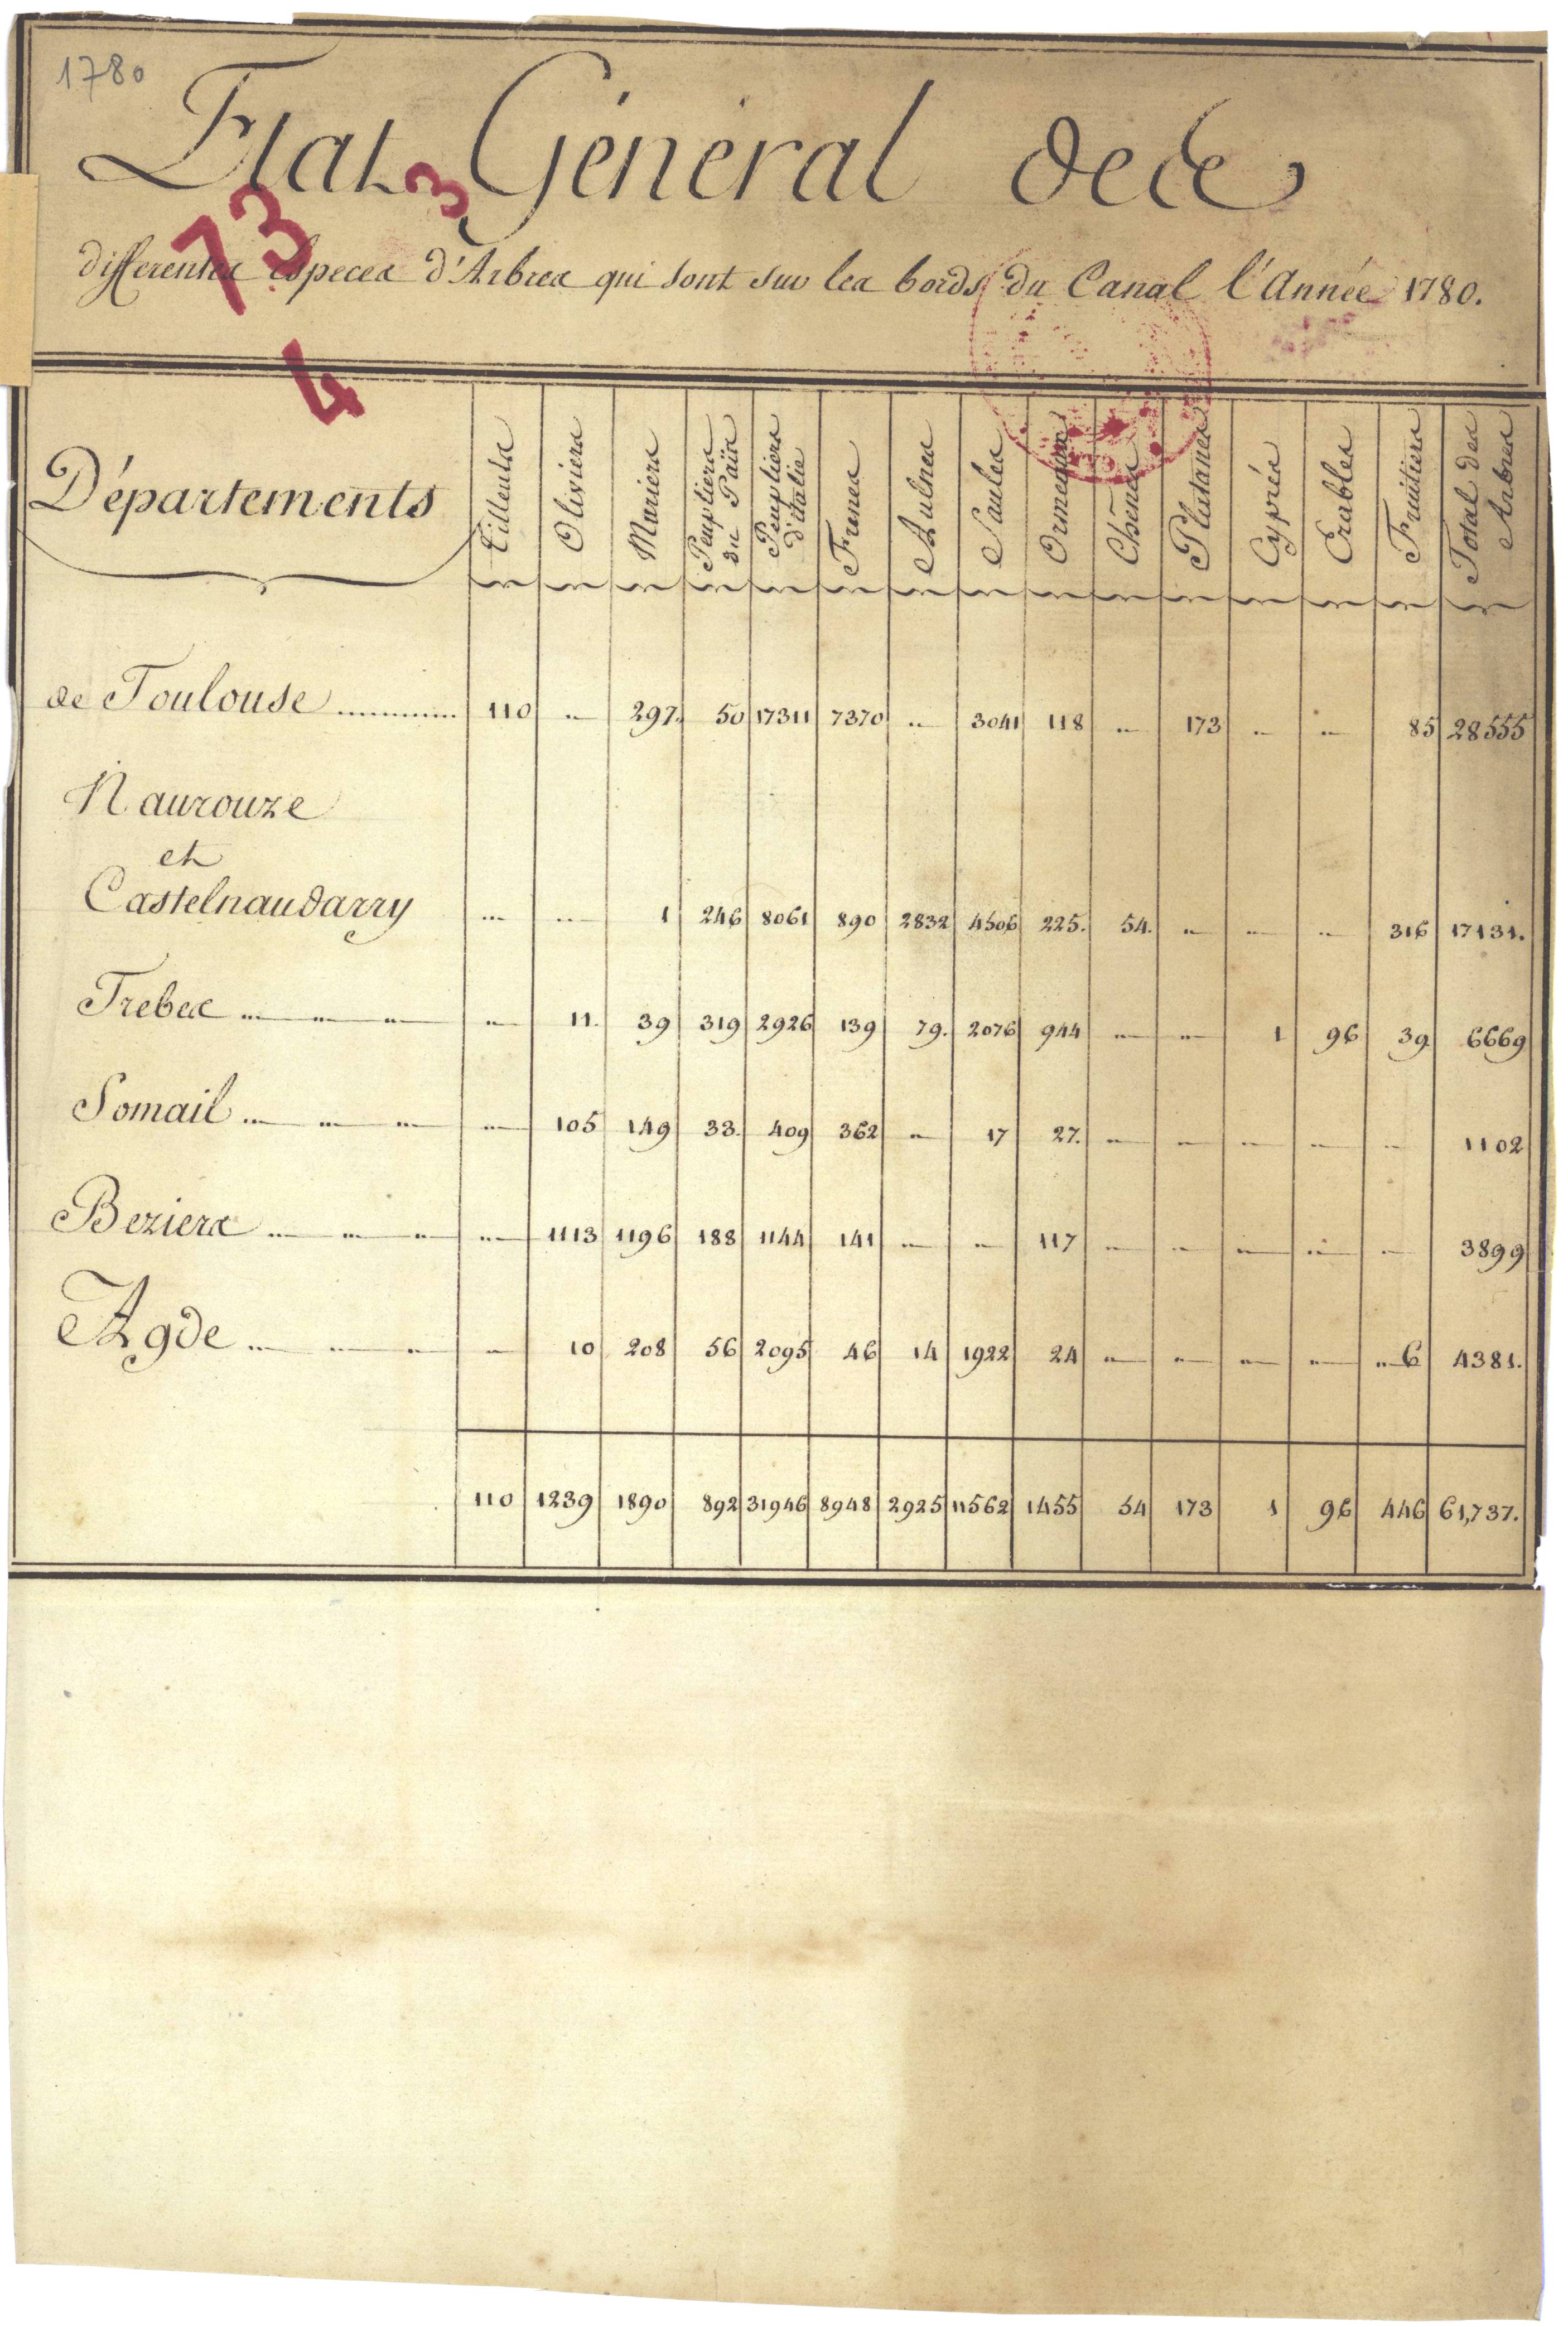 1780
Etat Général des
73 3
differentes especes d'Arbres qui sont sur les bords du Canal l'Année 1780.
4
Départements Tilleuls Oliviers Muriers Peupliers du Païs Peupliers d'italie Frenes Aulnes Saules Ormeaux Chênes Platanes Cyprés Erables Fruitiers Total des Arbres
de Toulouse .......... 110 .. 297. 50 17311 7370 .. 3041 118 .. 173 .. .. 85 28555
Naurouze
et
Castelnaudarry ... .. 1 246 8061 890 2832 4506 225. 54. .. .. .. 316 17131.
Trebes .. .. .. .. 11. 39 319 2926 139 79. 2076 944 .. .. 1 96 39 6669
Somail .. .. .. .. 105 149 33. 409 362 .. 17 27. .. .. .. .. .. 1102
Beziers .. .. .. .. 1113 1196 188 1144 141 .. .. 117 .. .. .. .. .. 3899
Agde .. .. .. .. 10 208 56 2095 46 14 1922 24 .. .. .. .. ..6 4381.
110 1239 1890 892 31946 8948 2925 11562 1455 54 173 1 96 446 61,737.